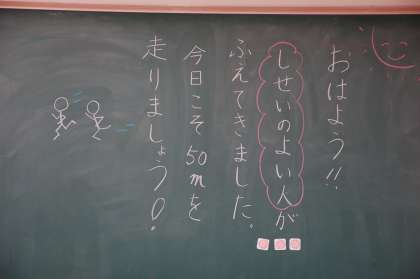 おはよう!!
しせいのよい人が
ふえてきました。
今日こそ50mを
走りましょう。